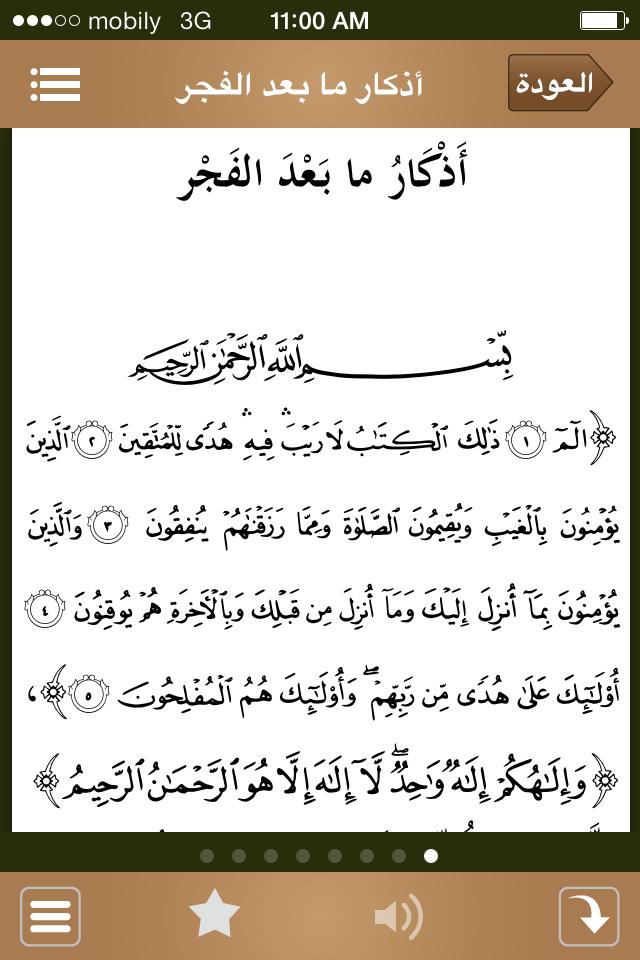 mobily 3G 11:00 AM
العودة أذكار ما بعد الفجر
أَذْكَارُ ما بَعْدَ الفَجْر
بِسْمِ ٱللَّهِ ٱلرَّحْمَٰنِ ٱلرَّحِيمِ
﴿الٓمٓ ١ ذَٰلِكَ ٱلْكِتَٰبُ لَا رَيْبَ ۛ فِيهِ ۛ هُدًى لِّلْمُتَّقِينَ ٢ ٱلَّذِينَ
يُؤْمِنُونَ بِٱلْغَيْبِ وَيُقِيمُونَ ٱلصَّلَوٰةَ وَمِمَّا رَزَقْنَٰهُمْ يُنفِقُونَ ٣ وَٱلَّذِينَ
يُؤْمِنُونَ بِمَآ أُنزِلَ إِلَيْكَ وَمَآ أُنزِلَ مِن قَبْلِكَ وَبِٱلْـَٔاخِرَةِ هُمْ يُوقِنُونَ ٤
أُو۟لَٰٓئِكَ عَلَىٰ هُدًى مِّن رَّبِّهِمْ ۖ وَأُو۟لَٰٓئِكَ هُمُ ٱلْمُفْلِحُونَ ٥﴾،
﴿وَإِلَٰهُكُمْ إِلَٰهٌ وَٰحِدٌ ۖ لَّآ إِلَٰهَ إِلَّا هُوَ ٱلرَّحْمَٰنُ ٱلرَّحِيمُ﴾